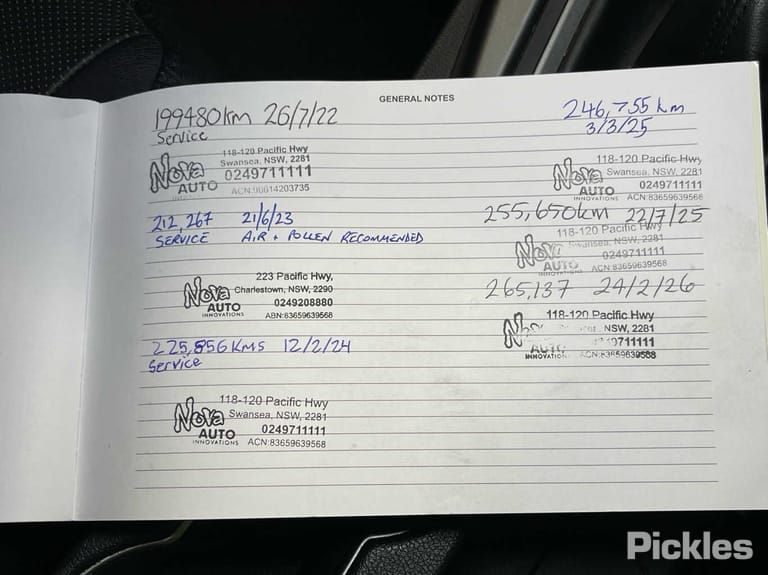 GENERAL NOTES
199480km 26/7/22
Service
118-120 Pacific Hwy
Swansea, NSW, 2281
Nova 0249711111
AUTO
ACN:90014203735
212,267 21/6/23
SERVICE AIR + POLLEN RECOMMENDED
223 Pacific Hwy,
Charlestown, NSW, 2290
Nova
AUTO 0249208880
INNOVATIONS ABN:83659639568
225,856 KMS 12/2/24
Service
118-120 Pacific Hwy
Swansea, NSW, 2281
Nova
AUTO 0249711111
INNOVATIONS ACN:83659639568
246,755 km
3/3/25
118-120 Pacific Hwy
Swansea, NSW, 2281
Nova
AUTO 0249711111
INNOVATIONS ACN:83659639568
255,650km 22/7/25
118-120 Pacific Hwy
Swansea, NSW, 2281
Nova 0249711111
AUTO ACN:83659639568
265,137 24/2/26
118-120 Pacific Hwy
NSW, 2281
AUTO
INNOVATIONS ACN:83659639568
Pickles